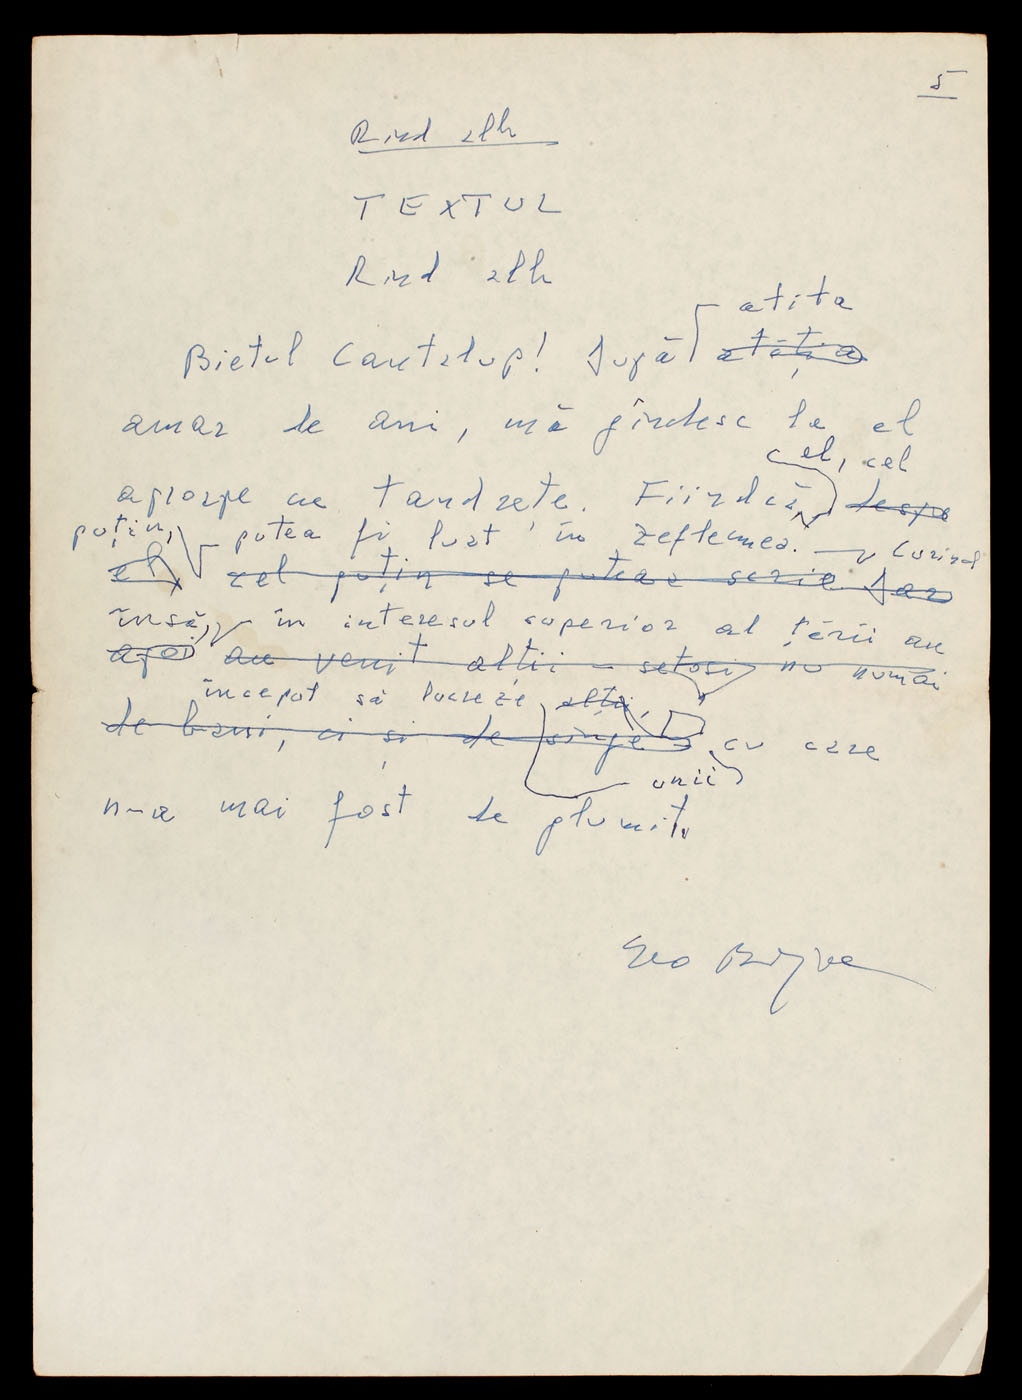 5
Rînd alb
TEXTUL
Rînd alb
atîta
Bietul Cantalup! După atâția
amar de ani, mă gîndesc la el
el, cel
aproape cu tandrețe. Fiindcă despre
puțin, putea fi luat în zeflemea. Curînd
el, cel puțin se putea scrie. Dar
însă, în interesul superior al țării au
apoi au venit alții setoși nu numai
început să lucreze alții,
de bani, ci și de sînge cu care
unii
n-a mai fost de glumit.
Geo Bogza